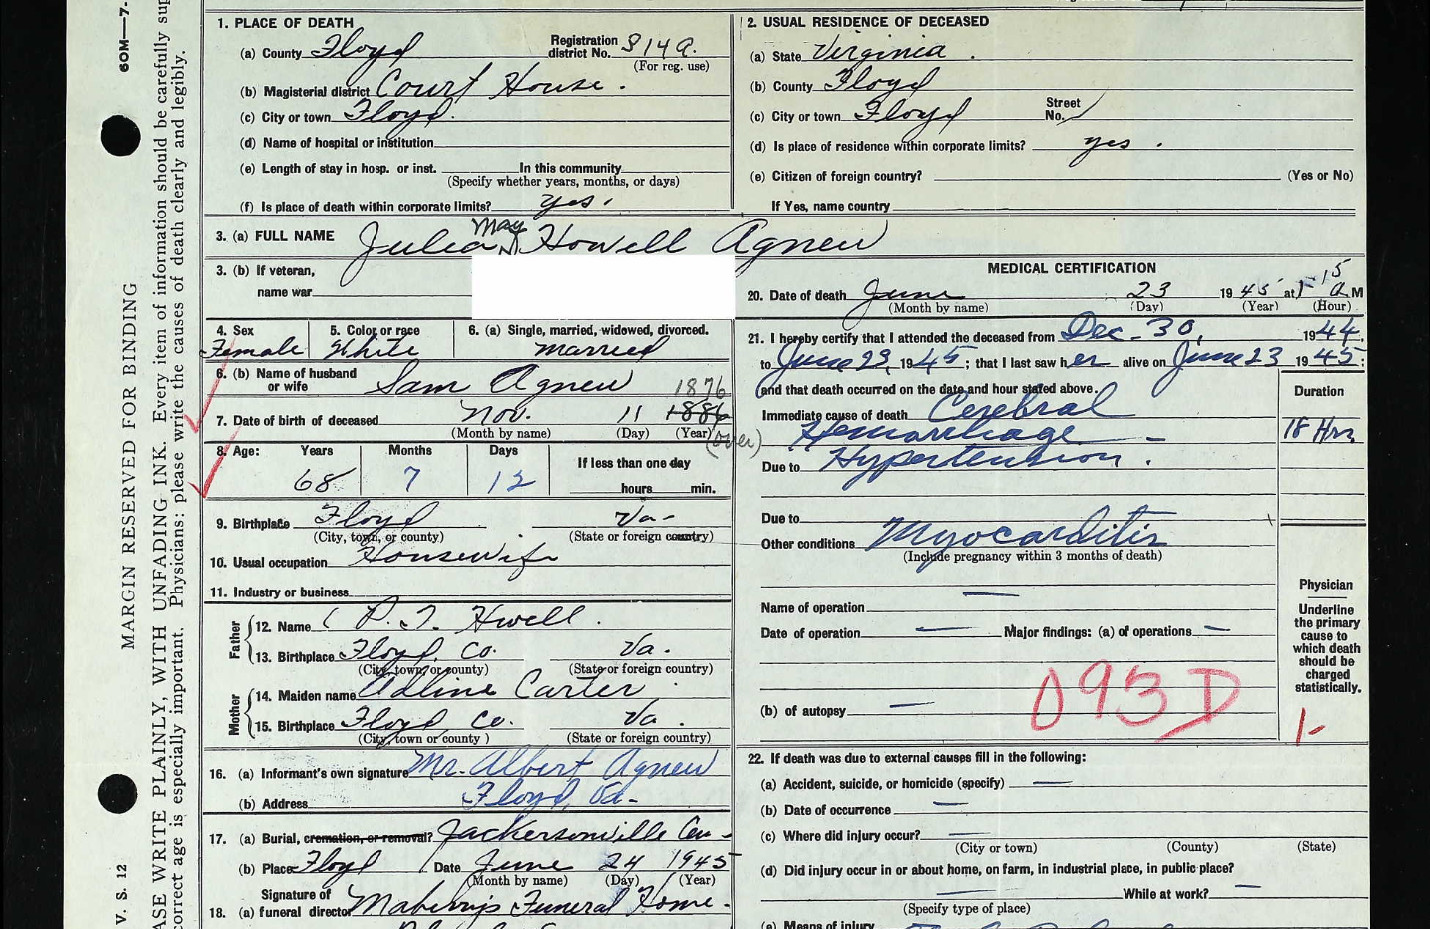 60M—7-
MARGIN RESERVED FOR BINDING
ASE WRITE PLAINLY, WITH UNFADING INK. Every item of information should be carefully sup
correct age is especially important. Physicians: please write the causes of death clearly and legibly.
V. S. 12
1. PLACE OF DEATH
(a) County Floyd Registration district No. 314A.
(For reg. use)
(b) Magisterial district Court House.
(c) City or town Floyd.
(d) Name of hospital or institution
(e) Length of stay in hosp. or inst. In this community
(Specify whether years, months, or days)
(f) Is place of death within corporate limits? yes.
2. USUAL RESIDENCE OF DECEASED
(a) State Virginia.
(b) County Floyd
(c) City or town Floyd Street No.
(d) Is place of residence within corporate limits? yes.
(e) Citizen of foreign country? (Yes or No)
If Yes, name country
3. (a) FULL NAME Julia May Howell Agnew
3. (b) If veteran,
name war
4. Sex Female
5. Color or race White
6. (a) Single, married, widowed, divorced. married
6. (b) Name of husband or wife Sam Agnew
1876
7. Date of birth of deceased Nov. 11 1886
(Month by name) (Day) (Year) (over)
8. Age: Years Months Days If less than one day
68 7 12 hours min.
9. Birthplace Floyd Va-
(City, town, or county) (State or foreign country)
10. Usual occupation Housewife
11. Industry or business
Father
12. Name P. T. Hwell.
13. Birthplace Floyd Co. Va.
(City, town or county) (State or foreign country)
Mother
14. Maiden name Adline Carter
15. Birthplace Floyd Co. Va.
(City, town or county) (State or foreign country)
16. (a) Informant's own signature Mr. Albert Agnew
(b) Address Floyd, Va-
17. (a) Burial, cremation, or removal? Jackersonville Cem-
(b) Place Floyd Date June 24 1945
(Month by name) (Day) (Year)
Signature of
18. (a) funeral director Maberry's Funeral Home.
MEDICAL CERTIFICATION
20. Date of death June 23 1945 at 1-15 A M
(Month by name) (Day) (Year) (Hour)
21. I hereby certify that I attended the deceased from Dec. 30, 1944,
to June 23, 1945; that I last saw her alive on June 23 1945;
and that death occurred on the date and hour stated above.
Duration
Immediate cause of death Cerebral
Hemorrhage - 18 Hrs
Due to Hypertension.
Due to
Other conditions Myocarditis
(Include pregnancy within 3 months of death)
Name of operation
Date of operation Major findings: (a) of operations
(b) of autopsy
093D
Physician
Underline
the primary
cause to
which death
should be
charged
statistically.
1-
22. If death was due to external causes fill in the following:
(a) Accident, suicide, or homicide (specify)
(b) Date of occurrence
(c) Where did injury occur?
(City or town) (County) (State)
(d) Did injury occur in or about home, on farm, in industrial place, in public place?
While at work?
(Specify type of place)
(e) Means of injury